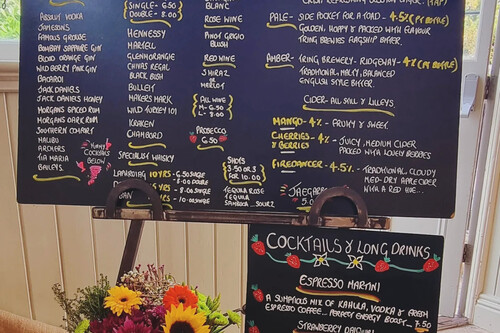 Absolut Vodka
Jamesons
Famous Grouse
Bombay Sapphire Gin
Blood Orange Gin
Wild Berry Pink Gin
Bacardi
Jack Daniels
Jack Daniels Honey
Morgans Spiced Rum
Morgans Dark Rum
Southern Comfort
Malibu
Archers
Tia Maria
Baileys
Yummy
Cocktails
Below
Single - 6.50
Double - 8.00
Hennessy
Martell
Glenmorangie
Chivas Regal
Black Bush
Bulleit
Makers Mark
Wild Turkey 101
Kraken
Chambord
Specialist Whisky
Laphroaig 10 yrs - 6.50 single
8.00 double
Blanc
Rose Wine
Pinot Grigio
Blush
Red Wine
Shiraz
or
Merlot
All Wine
M - 6.50
L - 7.00
Prosecco
6.50
Shots
3.50 or 3
for 10.00
Tequila Rose
Tequila
Sambuca Sourz
Pale - Side Pocket for a Toad - 4.5% (Ps Bottle)
Golden, Hoppy & Packed with Flavour
Tring Breweries Flagship Bitter.
Amber - Tring Brewery - Ridgeway - 4% (Ps Bottle)
Traditional, Malty, Balanced
English Style Bitter.
Cider - All Sam & Lilleys.
Mango - 4% - Fruity & Sweet.
Cherries - 4% - Juicy, Medium Cider
& Berries Packed with Lovely Berries
Firedancer - 4.5% - Traditional, Cloudy
Med-Dry Apple Cider
with a Red Hue...
Cocktails & Long Drinks
Espresso Martini
A Sumptuous Mix of Kahlua, Vodka & Fresh
Espresso Coffee... Perfect Energy Boost - 7.50
Strawberry Daiquiri